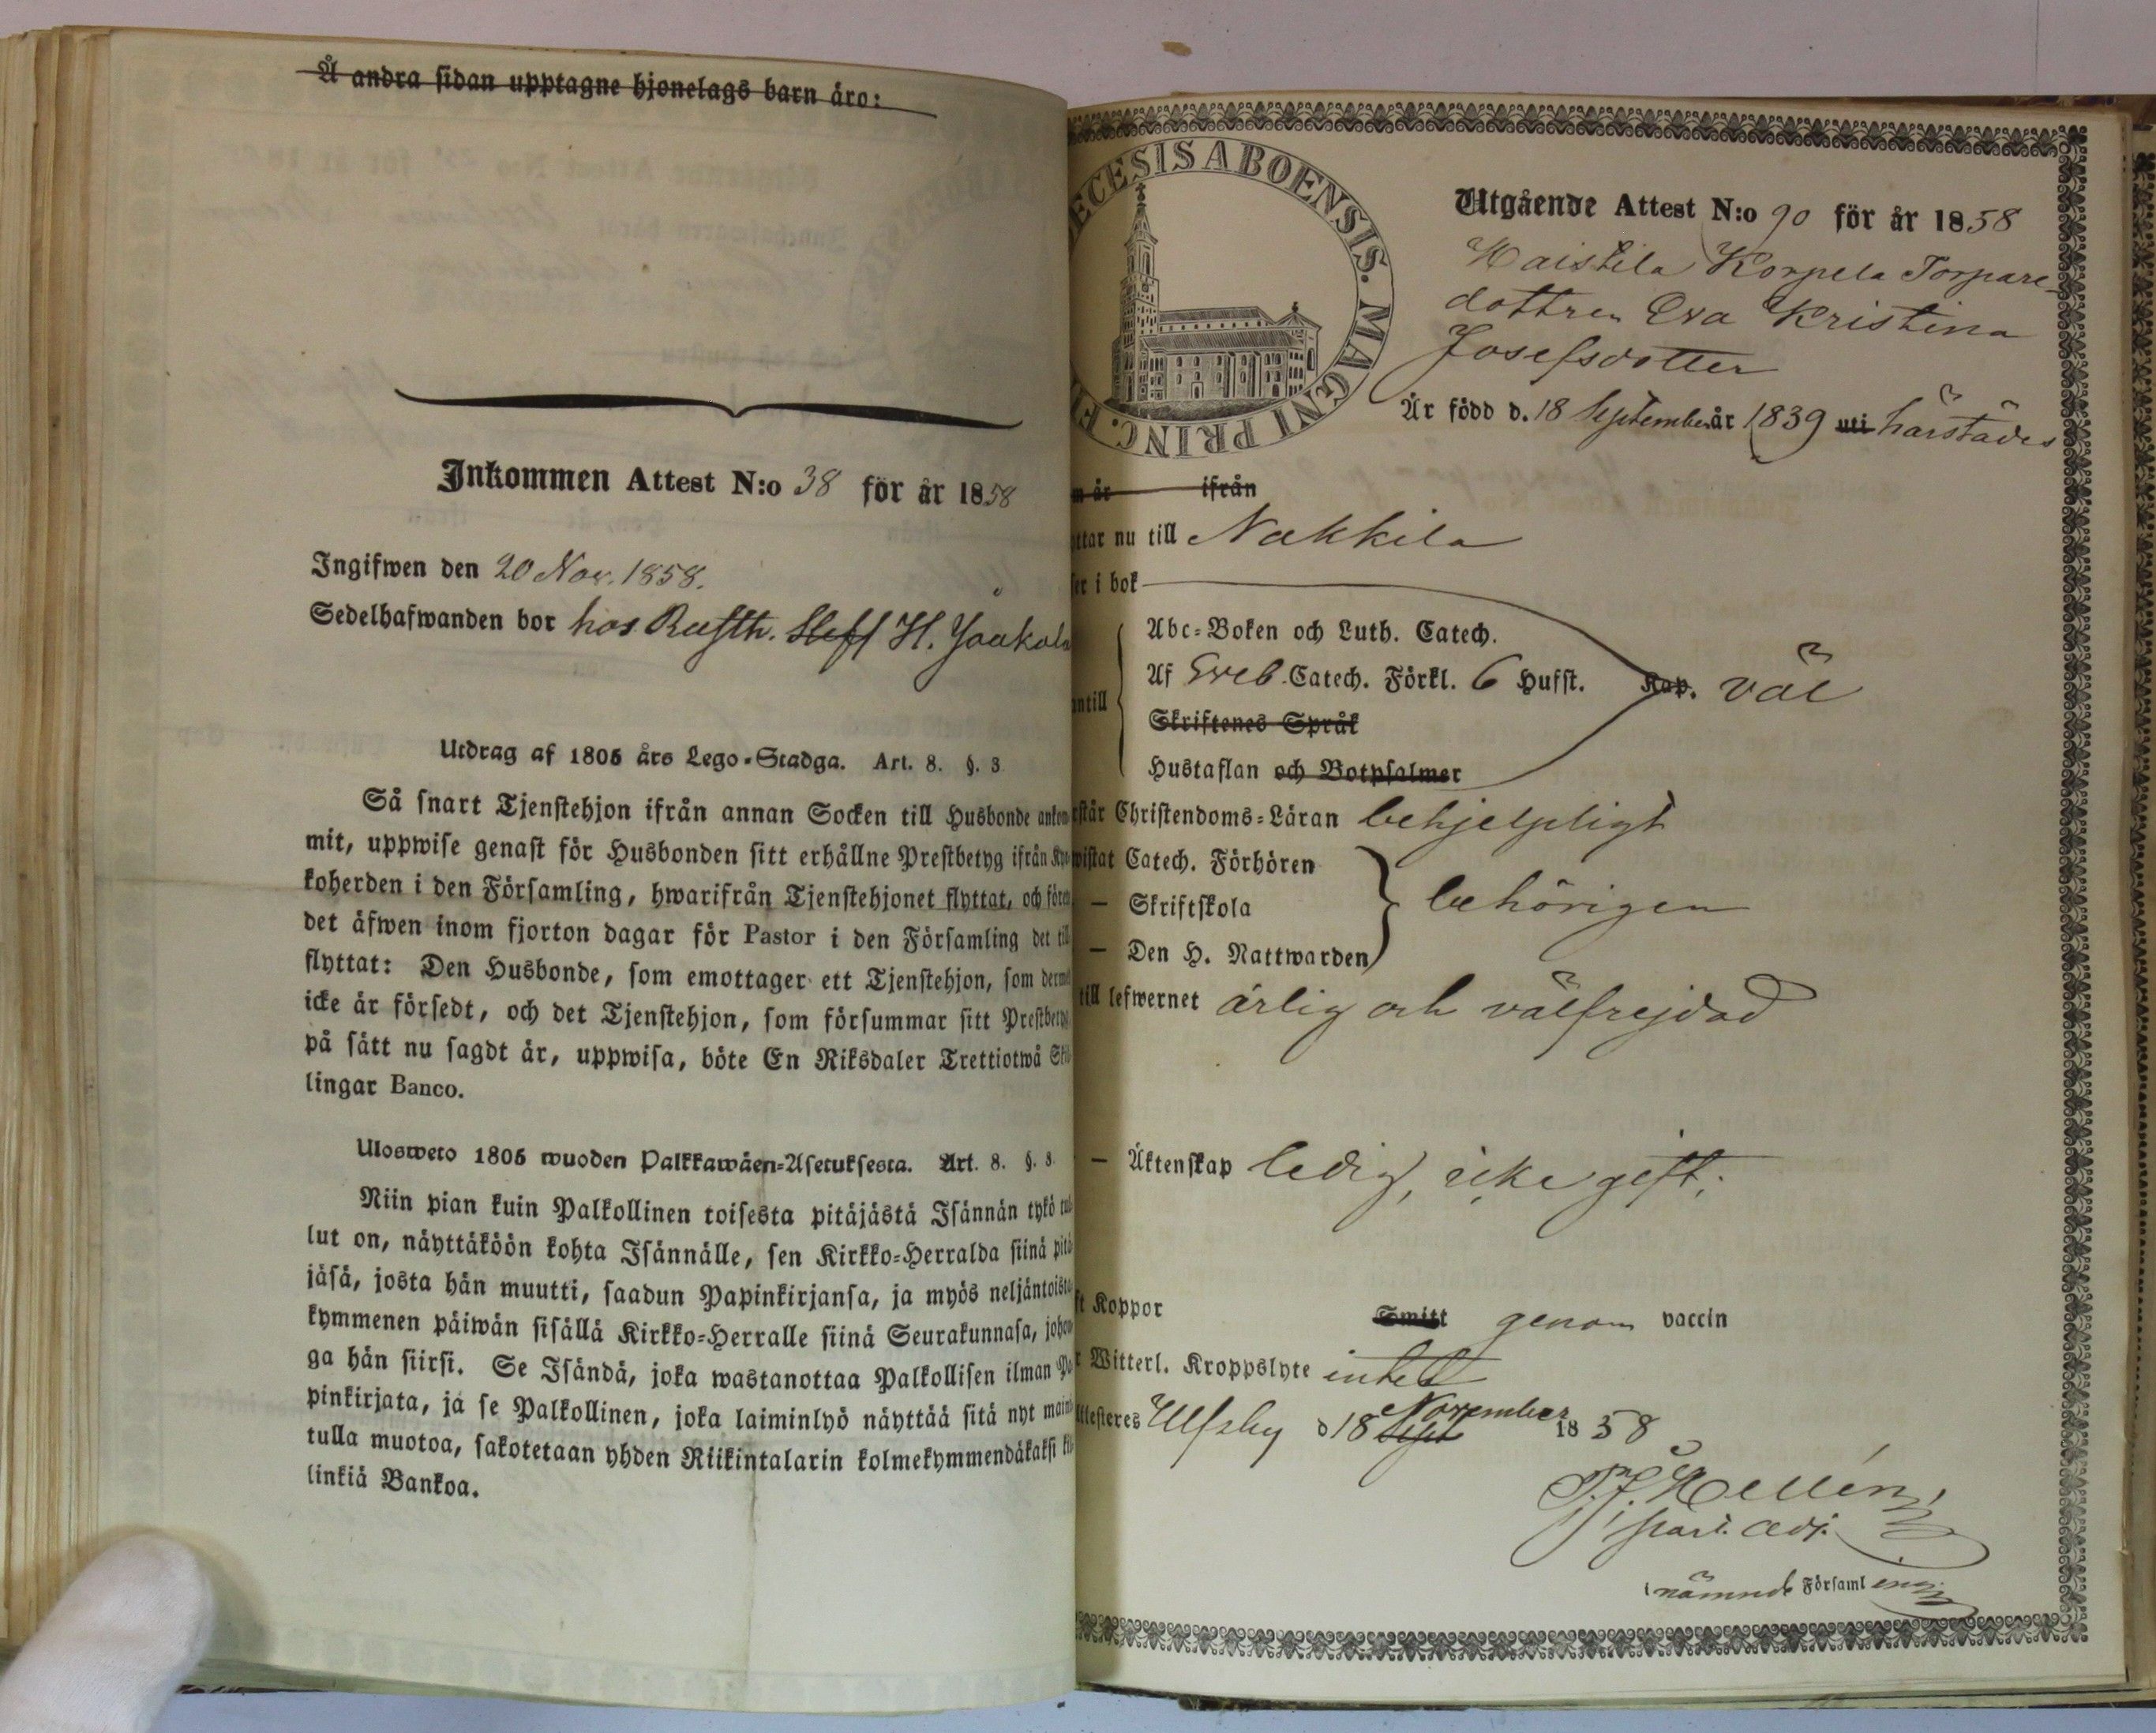 Å andra sidan upptagne hjonelags barn äro:
Inkommen Attest N:o 38 för år 1858
Ingifwen den 20 Nov. 1858.
Sedelhafwanden bor hos Rusth. H. Jaakola
Utdrag af 1805 års Lego-Stadga. Art. 8. §. 3.
Så snart Tjenstehjon ifrån annan Socken till Husbonde ankom
mit, uppwise genast för Husbonden sitt erhållne Prestbetyg ifrån Kyr
koherden i den Församling, hwarifrån Tjenstehjonet flyttat, och före
det äfwen inom fjorton dagar för Pastor i den Församling det till
flyttat: Den Husbonde, som emottager ett Tjenstehjon, som dermed
icke är försedt, och det Tjenstehjon, som försummar sitt Prestbetyg
på sätt nu sagdt är, uppwisa, böte En Riksdaler Trettiotwå Skil
lingar Banco.
Ulosweto 1805 wuoden Palkkawäen-Asetuksesta. Art. 8. §. 3.
Niin pian kuin Palkollinen toisesta pitäjästä Isännän tykö tul
lut on, näyttäköön kohta Isännälle, sen Kirkko-Herralda siinä pitä
jäsä, josta hän muutti, saadun Papinkirjansa, ja myös neljäntoista
kymmenen päiwän sisällä Kirkko-Herralle siinä Seurakunnasa, johon
ga hän siirsi. Se Isändä, joka wastanottaa Palkollisen ilman Pa
pinkirjata, ja se Palkollinen, joka laiminlyö näyttää sitä nyt maini
tulla muotoa, sakotetaan yhden Riikintalarin kolmekymmendäkaksi kil
linkiä Bankoa.
ECESIS ABOENSIS. MAGNI PRINC. FI
Utgående Attest N:o 90 för år 1858
Haistila Korpela Torpare-
dottren Eva Kristina
Josefsdotter
Är född d. 18 September år 1839 uti härstädes
n år ifrån
ttar nu till Nakkila
ser i bok
antill
Abc-Boken och Luth. Catech.
Af Sveb. Catech. Förkl. 6 Hufst. Kap. väl
Skriftenes Språk
Hustaflan och Botpsalmer
rstår Christendoms-Läran behjelpligt
wistat Catech. Förhören
— Skriftskola behörigen
— Den H. Nattwarden
till lefwernet ärlig och välfrejdad
— Äktenskap ledig, icke gift;
ft Koppor Smitt genom vaccin
r Witterl. Kroppslyte intet
Attesteres Ulfsby d 18 Sept November 1858
Hellén
nämnde Församling